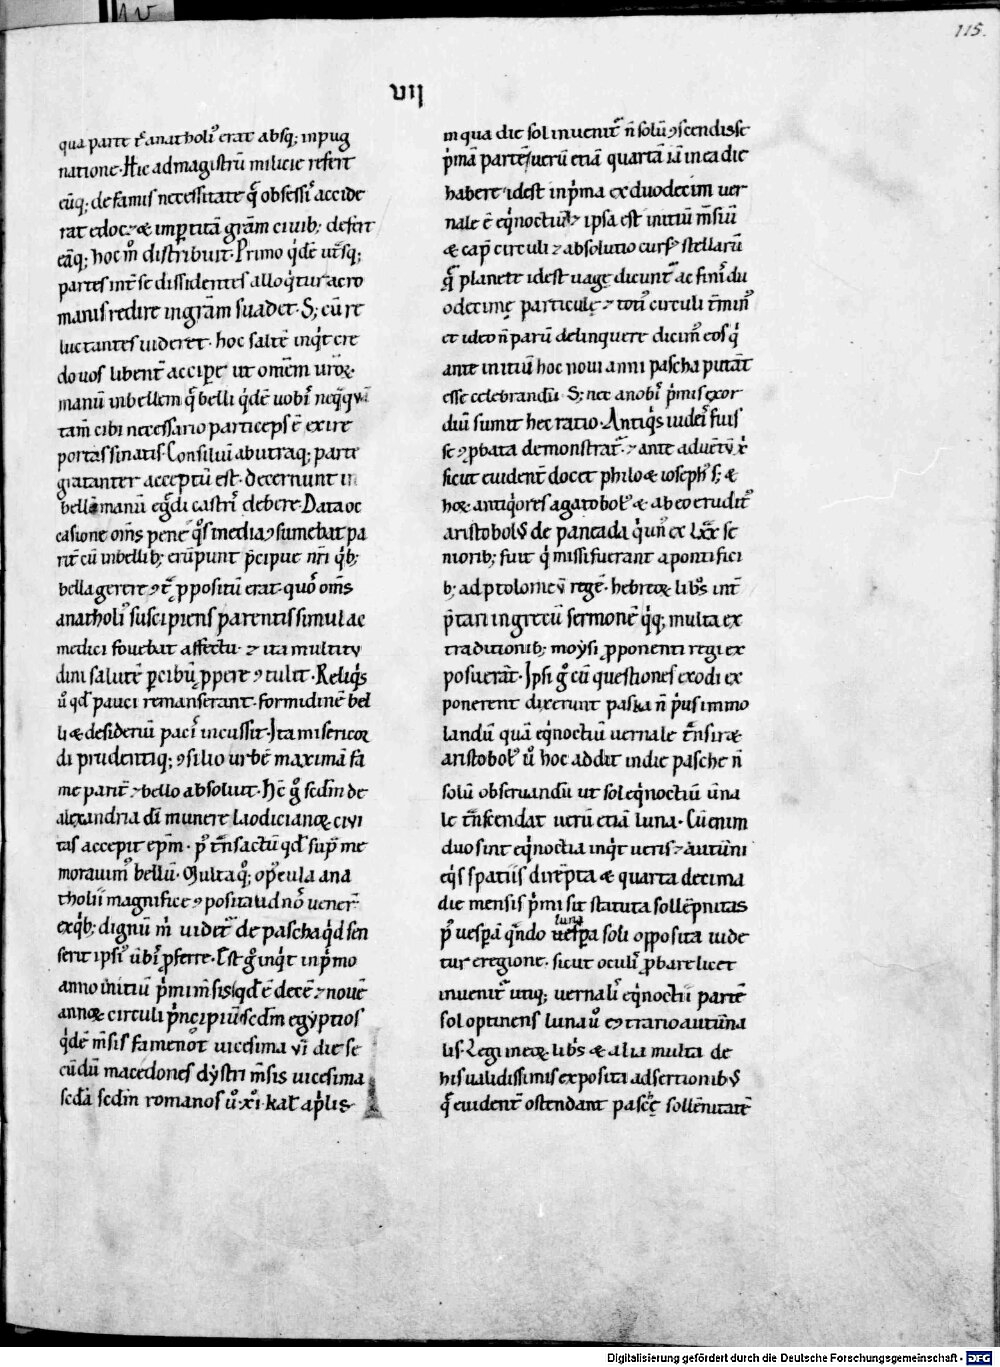 115.
VII
qua parte r̄ anatholiꝰ erat absq; inpug
natione. Hic ad magistrū milicie refert
cūq; de famis necessitate q̄ obsessis accide
rat edoc& impertitā gr̄am ciuib; defert
eāq; hoc m̊ distribuit. Primo q'dē utrsq;
partes int̄ se dissidentes alloq'tur ac ro
manis redire in gr̄am suadet. S; cū re
luctantes uideret. hoc saltē inq't cre
do uos libent̄ acciꝑe ut om̄em ur̄oꝝ.
manū inbellem q̄ belli q'dē uobis neq̄q̄
tam̄ cibi necessario particeps ē exire
portas sinatis. Consiluū ab utraq; parte
gratanter acceptū est. decernunt in
bellē manū eg̊di castris debere. Data oc
casione om̄s pene q̊s inedia ꝯsumebat pa
rit̄ cū inbellib; erūpunt p̄cipue nr̄i q'b;
bella gerere ꝯt̄ ꝓpositū erat. quos om̄s
anatholiꝰ suscipiens parentis simul ac
medici fouebat affectu. ⁊ ita multitu
dini salutē ꝑ cibū ꝓpere ꝯtulit. Reliq's
ů qd̄ pauci remanserant. formidinē bel
li & desideriū pacis incussit. Ita misericor
di prudentiq; ꝯsilio urbē maximā fa
me parit̄ ⁊ bello absoluit. Hc̄ g̊ scd̄m de
alexandria dī munere laodicianoꝝ ciui
tas accepit ep̄m. pꝰ tn̄sactū qd̄ sup̄ me
morauimꝰ bellū. Multaq; opꝰcula ana
tholii magnifice ꝯposita ad nos uener̄
ex q'b; dignū m' uidet̄ de pascha q'd sen
serit ipsiꝰ ūbis ꝓferre. Est g̊ inq't in p'mo
anno initiū p'mi m̄sis qd̄ ē decē ⁊ nouē
annoꝝ circuli p'ncipiū scd̄m egyptios
q'dē m̄sis famenot uicesima vi die se
cūdū macedones dystri m̄sis uicesima
scd̄a scd̄m romanos ů. xi. kal ap'lis
in qua die sol inuenit̄ n̄ solū ꝯscendisse
p'mā partē uerū etiā quartā iā in ea die
habere idest in p'ma ex duodecim uer
nale ē eq'noctiū & ipsa est initiū m̄siū
& cap̄ circuli ⁊ absolutio cursꝰ stellarū
q̄ planete idest uage dicunt̄ ac finis du
odecimę particulę ⁊ totiꝰ circuli t̄minꝰ
et ideo n̄ parū delinquere dicimꝰ eos q'
ante initiū hoc noui anni pascha putāt
esse celebrandū. S; nec a nobis p'mis exor
diū sumit hec ratio. Antiq's iudeis fuis
se ꝯꝓbata demonstrat̄. ⁊ ante aduētū xp̄i
sicut euident̄ docet philo & iosephꝰ s; &
hoꝝ antiq'ores agatobolꝰ & ab eo eruditꝰ
aristobolus de paneada q' unꝰ ex LXX se
niorib; fuit q' missi fuerant a pontifici
b; ad ptolomeū regē. hebreoꝝ lib's int̄
p̄tari in grecū sermonē q'q; multa ex
traditionib; moysi ꝓponenti regi ex
posuerāt. Ipsi g̊ cū questiones exodi ex
ponerent dixerunt paska n̄ p'us immo
landū quā eq'noctiū uernale tn̄siræ
aristobolꝰ ů hoc addit in die pasche n̄
solū obseruandū ut sol eq'noctiū ūna
le tn̄scendat uerū etiā luna. Cū enim
duo sint eq'noctia inq't ueris ⁊ autūni
eq's spatiis dirēpta & quarta decima
die mensis p'mi sit statuta sollēpnitas
pꝰ uesꝑā q̄ndo luna uesꝑa soli opposita uide
tur e regione. sicut oculis ꝓbare licet
inuenit̄ utiq; uernalis eq'noctii partē
sol optinens luna ů ecͦtrario autūna
lis. Legi in eoꝝ lib's & alia multa de
his ualidissimis exposita adsertionibꝰ
q̄ euident̄ ostendant paschę sollēnitatē
Digitalisierung gefördert durch die Deutsche Forschungsgemeinschaft - DFG